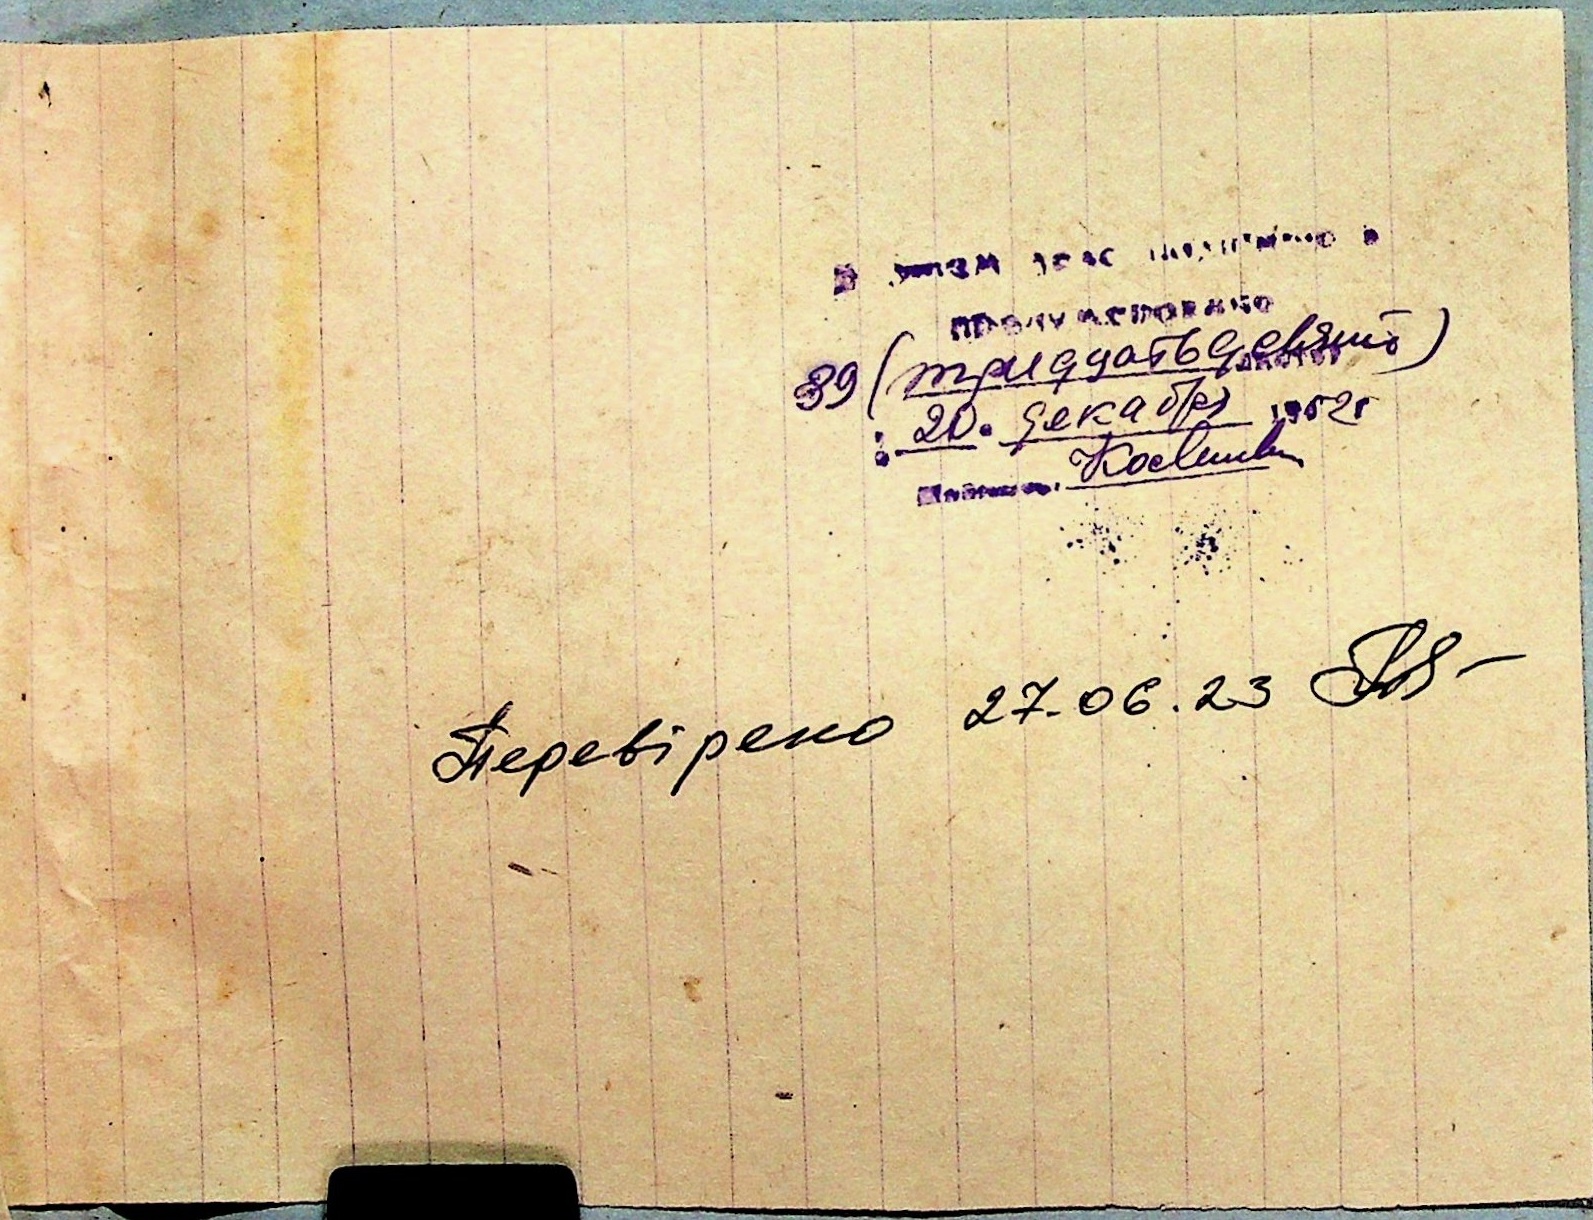 В этом деле подшито и
пронумеровано
39 (тридцать девять)
листов
" 20 " декабря 1952 г
Подпись
Перевірено 27.06.23